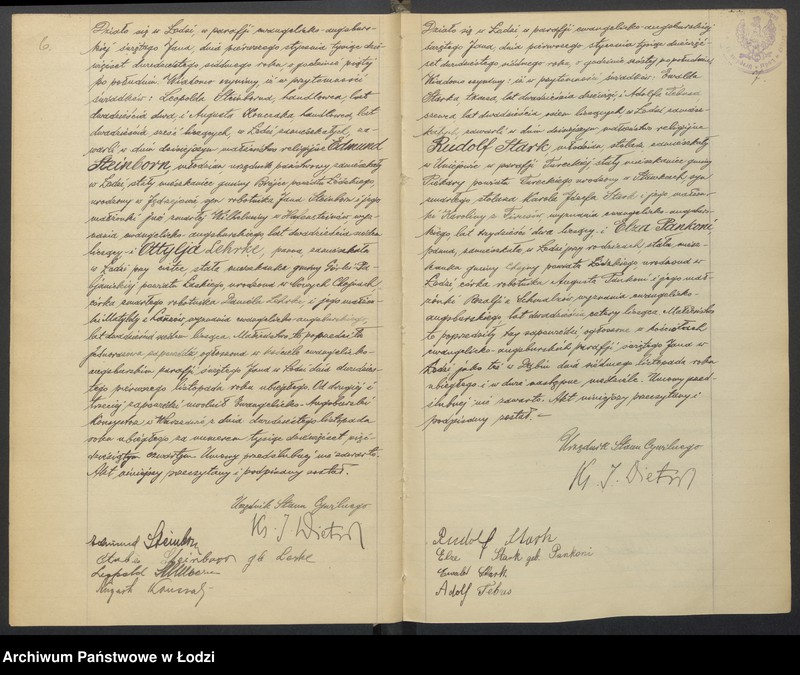 6.
Działo się w Łodzi w parafji ewangelicko-augsbur-
skiej świętego Jana, dnia pierwszego stycznia tysiąc dzie-
więćset dwudziestego siódmego roku, o godzinie piątej
po południu. Wiadomo czynimy, iż w przytomności
świadków: Leopolda Steinborna, handlowca, lat
dwadzieścia dwa, i Augusta handlowca, lat
dwadzieścia sześć liczących, w Łodzi zamieszkałych, za-
warli w dniu dzisiejszym małżeństwo religijne Edmund
Steinborn, młodzian, urzędnik państwowy, zamieszkały
w Łodzi, stały mieszkaniec gminy Brójce powiatu Łódzkiego,
urodzony w syn robotnika Jana Steinborn i jego
małżonki już zmarłej Wilhelminy z wyz-
nania ewangelicko-augsburskiego, lat dwadzieścia
liczący - i Ottylja Lehrke, panna, zamieszkała
w Łodzi przy stała mieszkanka gminy Górka Pa-
bjanicka powiatu Łaskiego, urodzona w Chojnach,
córka zmarłego robotnika Daniela Lehrke, i jego małżon-
ki Matyldy z wyznania ewangelicko-augsburskiego,
lat dwadzieścia siedem licząca. Małżeństwo to poprzedziła
jednorazowa zapowiedź, ogłoszona w kościele ewangelicko-
augsburskim parafji świętego Jana w Łodzi dnia dwudzies-
tego pierwszego listopada roku ubiegłego. Od drugiej i
trzeciej zapowiedzi uwolnił Ewangelicko-Augsburski
Konsystorz w Warszawie z dnia dwudziestego listopada
roku ubiegłego za numerem tysiąc dziewięćset pięć-
dziesiątym czwartym. Umowy przedślubnej nie zawarto.
Akt niniejszy przeczytany i podpisany został.
Urzędnik Stanu Cywilnego
Ks. J. Dietrich
Edmund Steinborn
Steinborn gb. Lerke
Leopold
August
Działo się w Łodzi w parafji ewangelicko-augsburskiej
świętego Jana, dnia pierwszego stycznia tysiąc dziewięć-
set dwudziestego siódmego roku, o godzinie szóstej po południu.
Wiadomo czynimy, iż w przytomności świadków: Ewalda
Starka, tkacza, lat dwadzieścia dziewięć, i Adolfa Febus,
szewca, lat dwadzieścia osiem liczących, w Łodzi zamiesz-
kałych, zawarli w dniu dzisiejszym małżeństwo religijne
Rudolf Stark, młodzian, stolarz, zamieszkały
w Uniejowie, w parafji Tureckiej, stały mieszkaniec gminy
Piekary powiatu Tureckiego, urodzony w syn
zmarłego stolarza Karola Józefa Stark i jego małżon-
ki Karoliny z wyznania ewangelicko-augsbur-
skiego, lat trzydzieści dwa liczący - i Elza Pankoni,
panna, zamieszkała w Łodzi przy rodzicach, stała miesz-
kanka gminy Chojny powiatu Łódzkiego, urodzona w
Łodzi, córka robotnika Augusta Pankoni i jego mał-
żonki z wyznania ewangelicko-
augsburskiego, lat dwadzieścia cztery licząca. Małżeństwo
to poprzedziły trzy zapowiedzi, ogłoszone w kościołach
ewangelicko-augsburskich parafji świętego Jana w
Łodzi jako też w Dąbiu dnia siódmego listopada roku
ubiegłego i w dwie następne niedziele. Umowy przed-
ślubnej nie zawarto. Akt niniejszy przeczytany i
podpisany został.
Urzędnik Stanu Cywilnego
Ks. J. Dietrich
Rudolf Stark
Elza Stark geb. Pankoni
Ewald Stark
Adolf Febus
Archiwum Państwowe w Łodzi